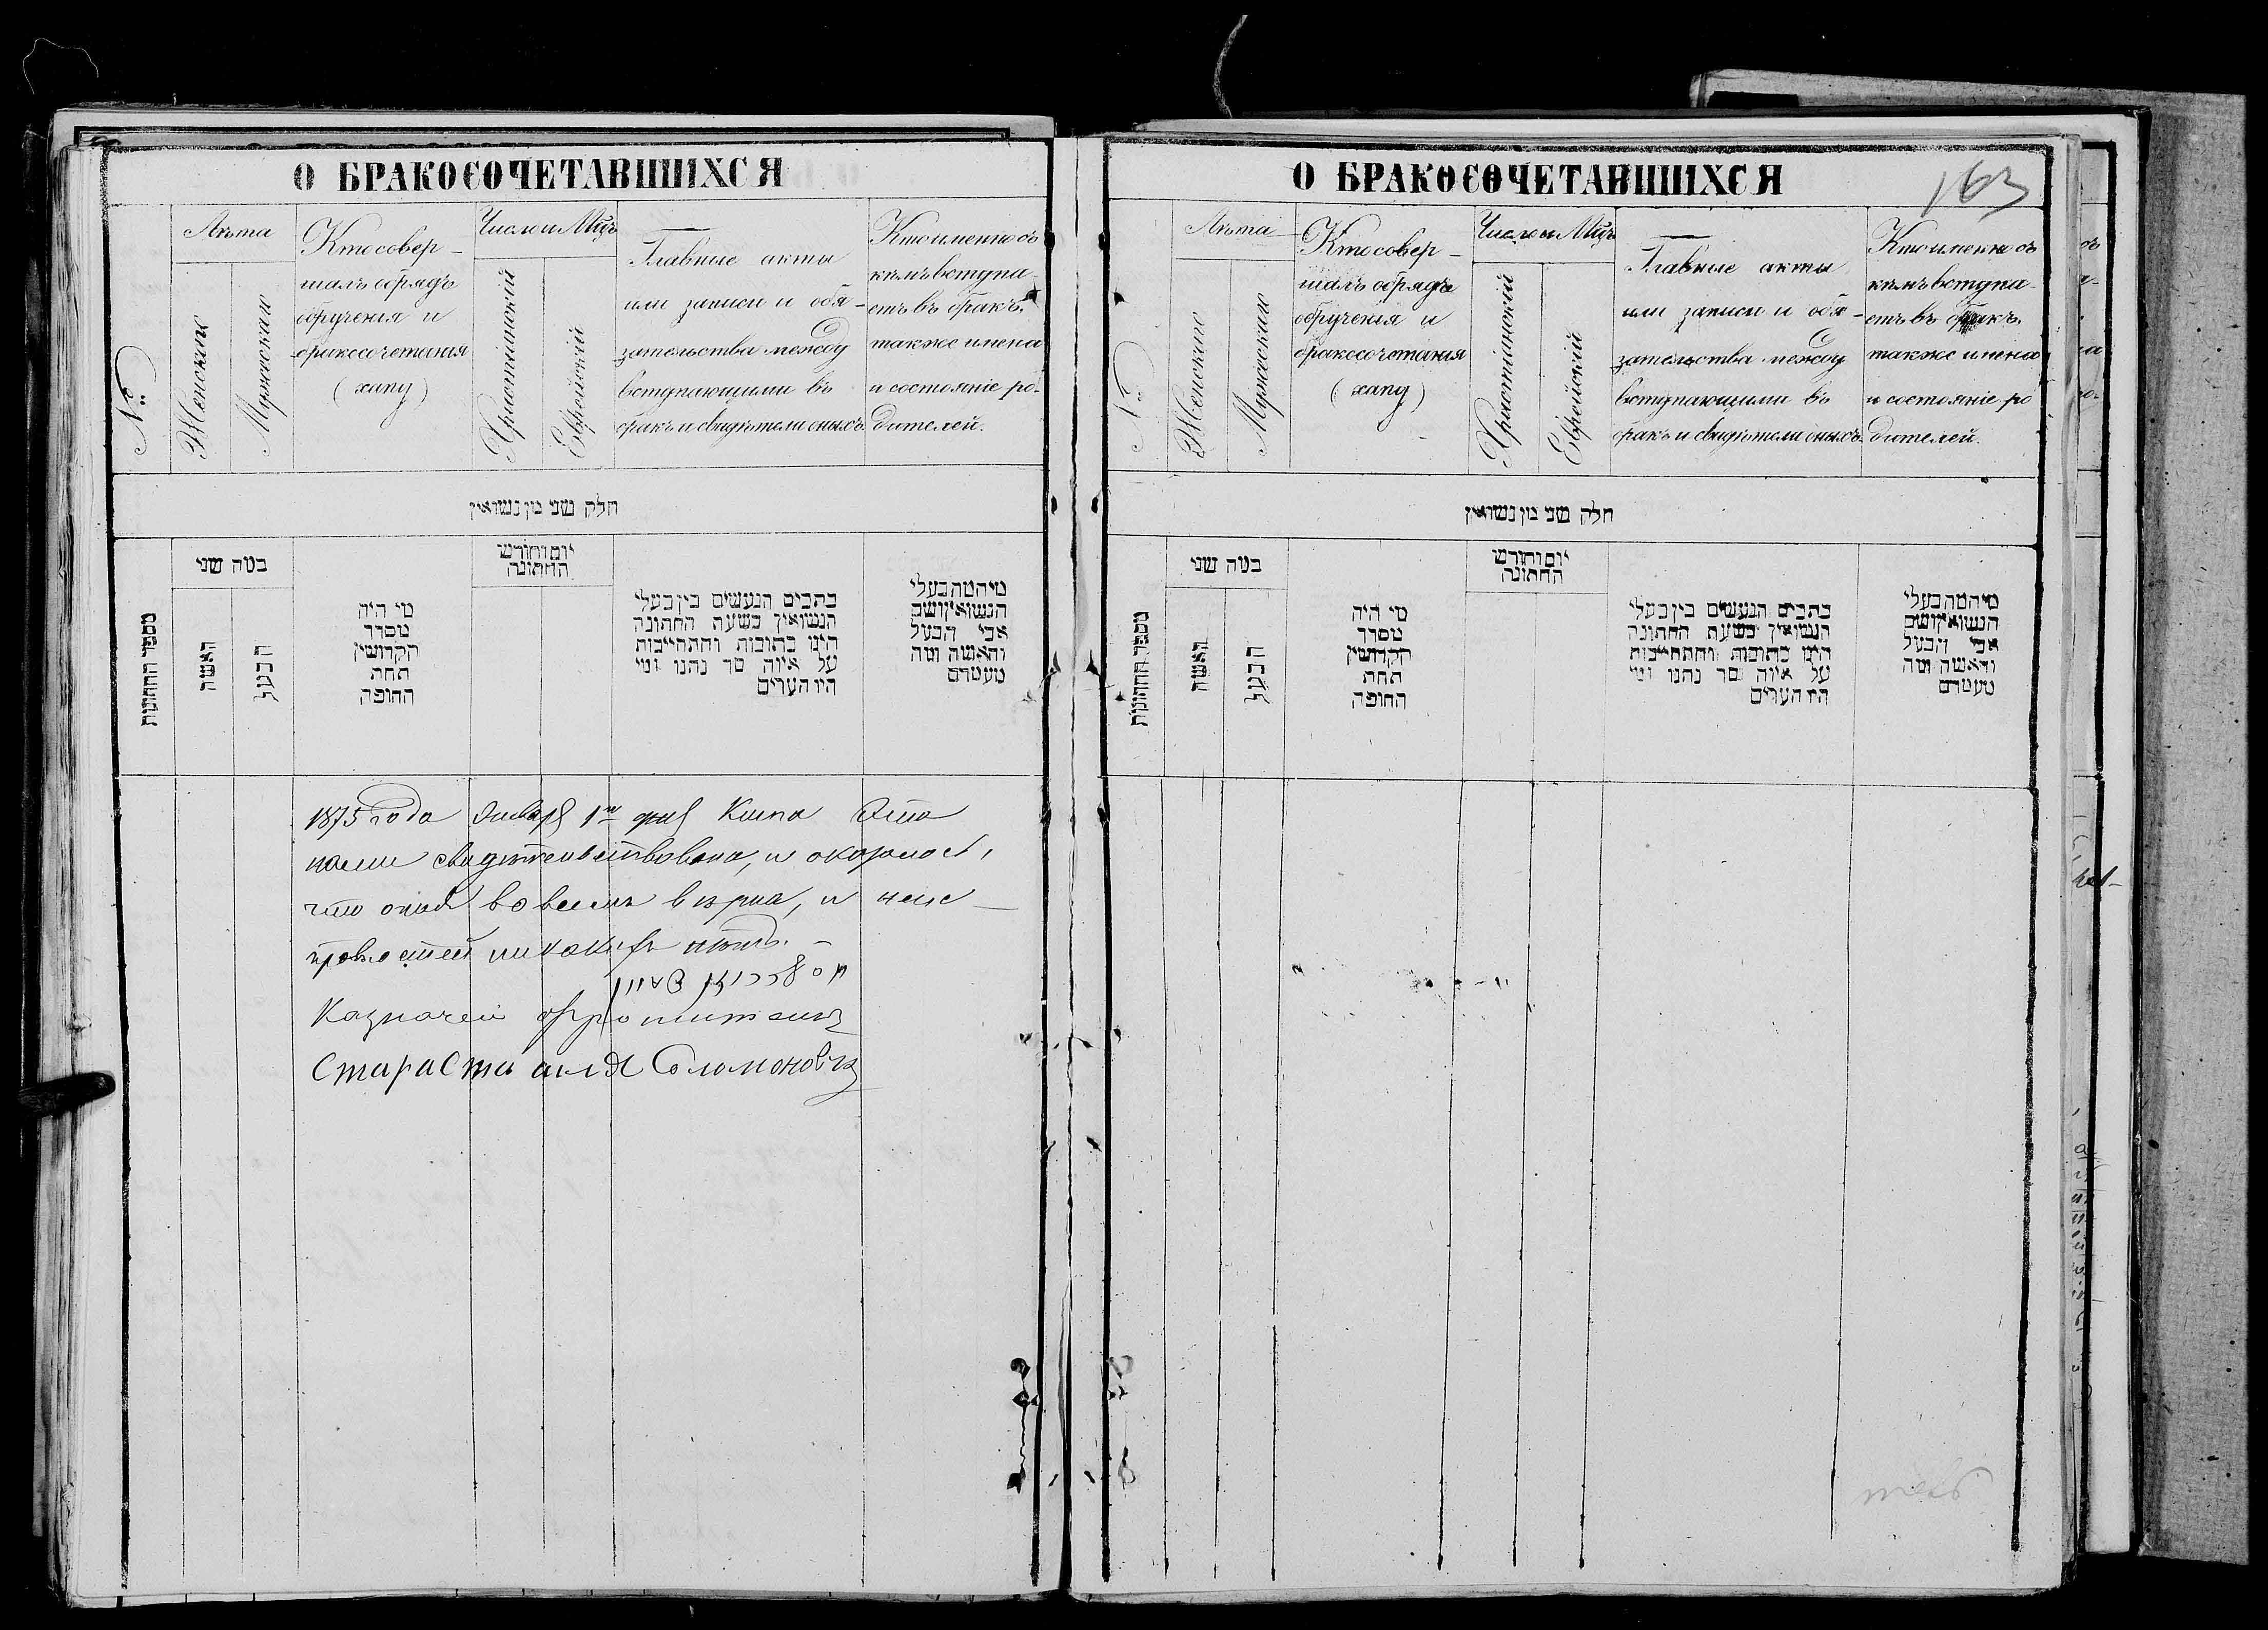 О БРАКОСОЧЕТАВШИХСЯ
№
Лѣта
Женскаго
Мужскаго
Кто совер-
шалъ обрядъ
обрученія и
бракосочетанія
(хапу)
Число и Мѣсц
Христіанскій
Еврейскій
Главные акты
или записи и обя-
зательства между
вступающими въ
бракъ и свидѣтели оныхъ.
Кто именно съ
кѣмъ вступа-
етъ въ бракъ.
также имена
и состояніе ро-
дителей.
חלק שני מן נשואין
מספר החתונות
במה שני
האשה
הבעל
מי היה
מסדר
הקדושין
תחת
החופה
יום וחורש
החתונה
כתבים הנעשים בין בעלי
הנשואין בשעת החתונה
היינו כתובות והתחייבות
על איזה סך נתנו ומי
היו העדים
מי המה בעלי
הנשואין ושם
אבי הבעל
והאשה ומה
מעמדם
1875 года Января 1го дня Книга эта
нами свидѣтельствована, и оказалось,
что оная во всемъ вѣрна, и неис-
правностей никакихъ нѣтъ. -
Казначей
Стараста Соломоновъ
О БРАКОСОЧЕТАВШИХСЯ
163
№
Лѣта
Женскаго
Мужскаго
Кто совер-
шалъ обрядъ
обрученія и
бракосочетанія
(хапу)
Число и Мѣсц
Христіанскій
Еврейскій
Главные акты
или записи и обя-
зательства между
вступающими въ
бракъ и свидѣтели оныхъ.
Кто именно съ
кѣмъ вступа-
етъ въ бракъ.
также имена
и состояніе ро
дителей.
חלק שני מן נשואין
מספר החתונות
במה שני
האשה
הבעל
מי היה
מסדר
הקדושין
תחת
החופה
יום וחורש
החתונה
כתבים הנעשים בין בעלי
הנשואין בשעת החתונה
היינו כתובות והתחייבות
על איזה סך נתנו ומי
היו העדים
מי המה בעלי
הנשואין ושם
אבי הבעל
והאשה ומה
מעמדם